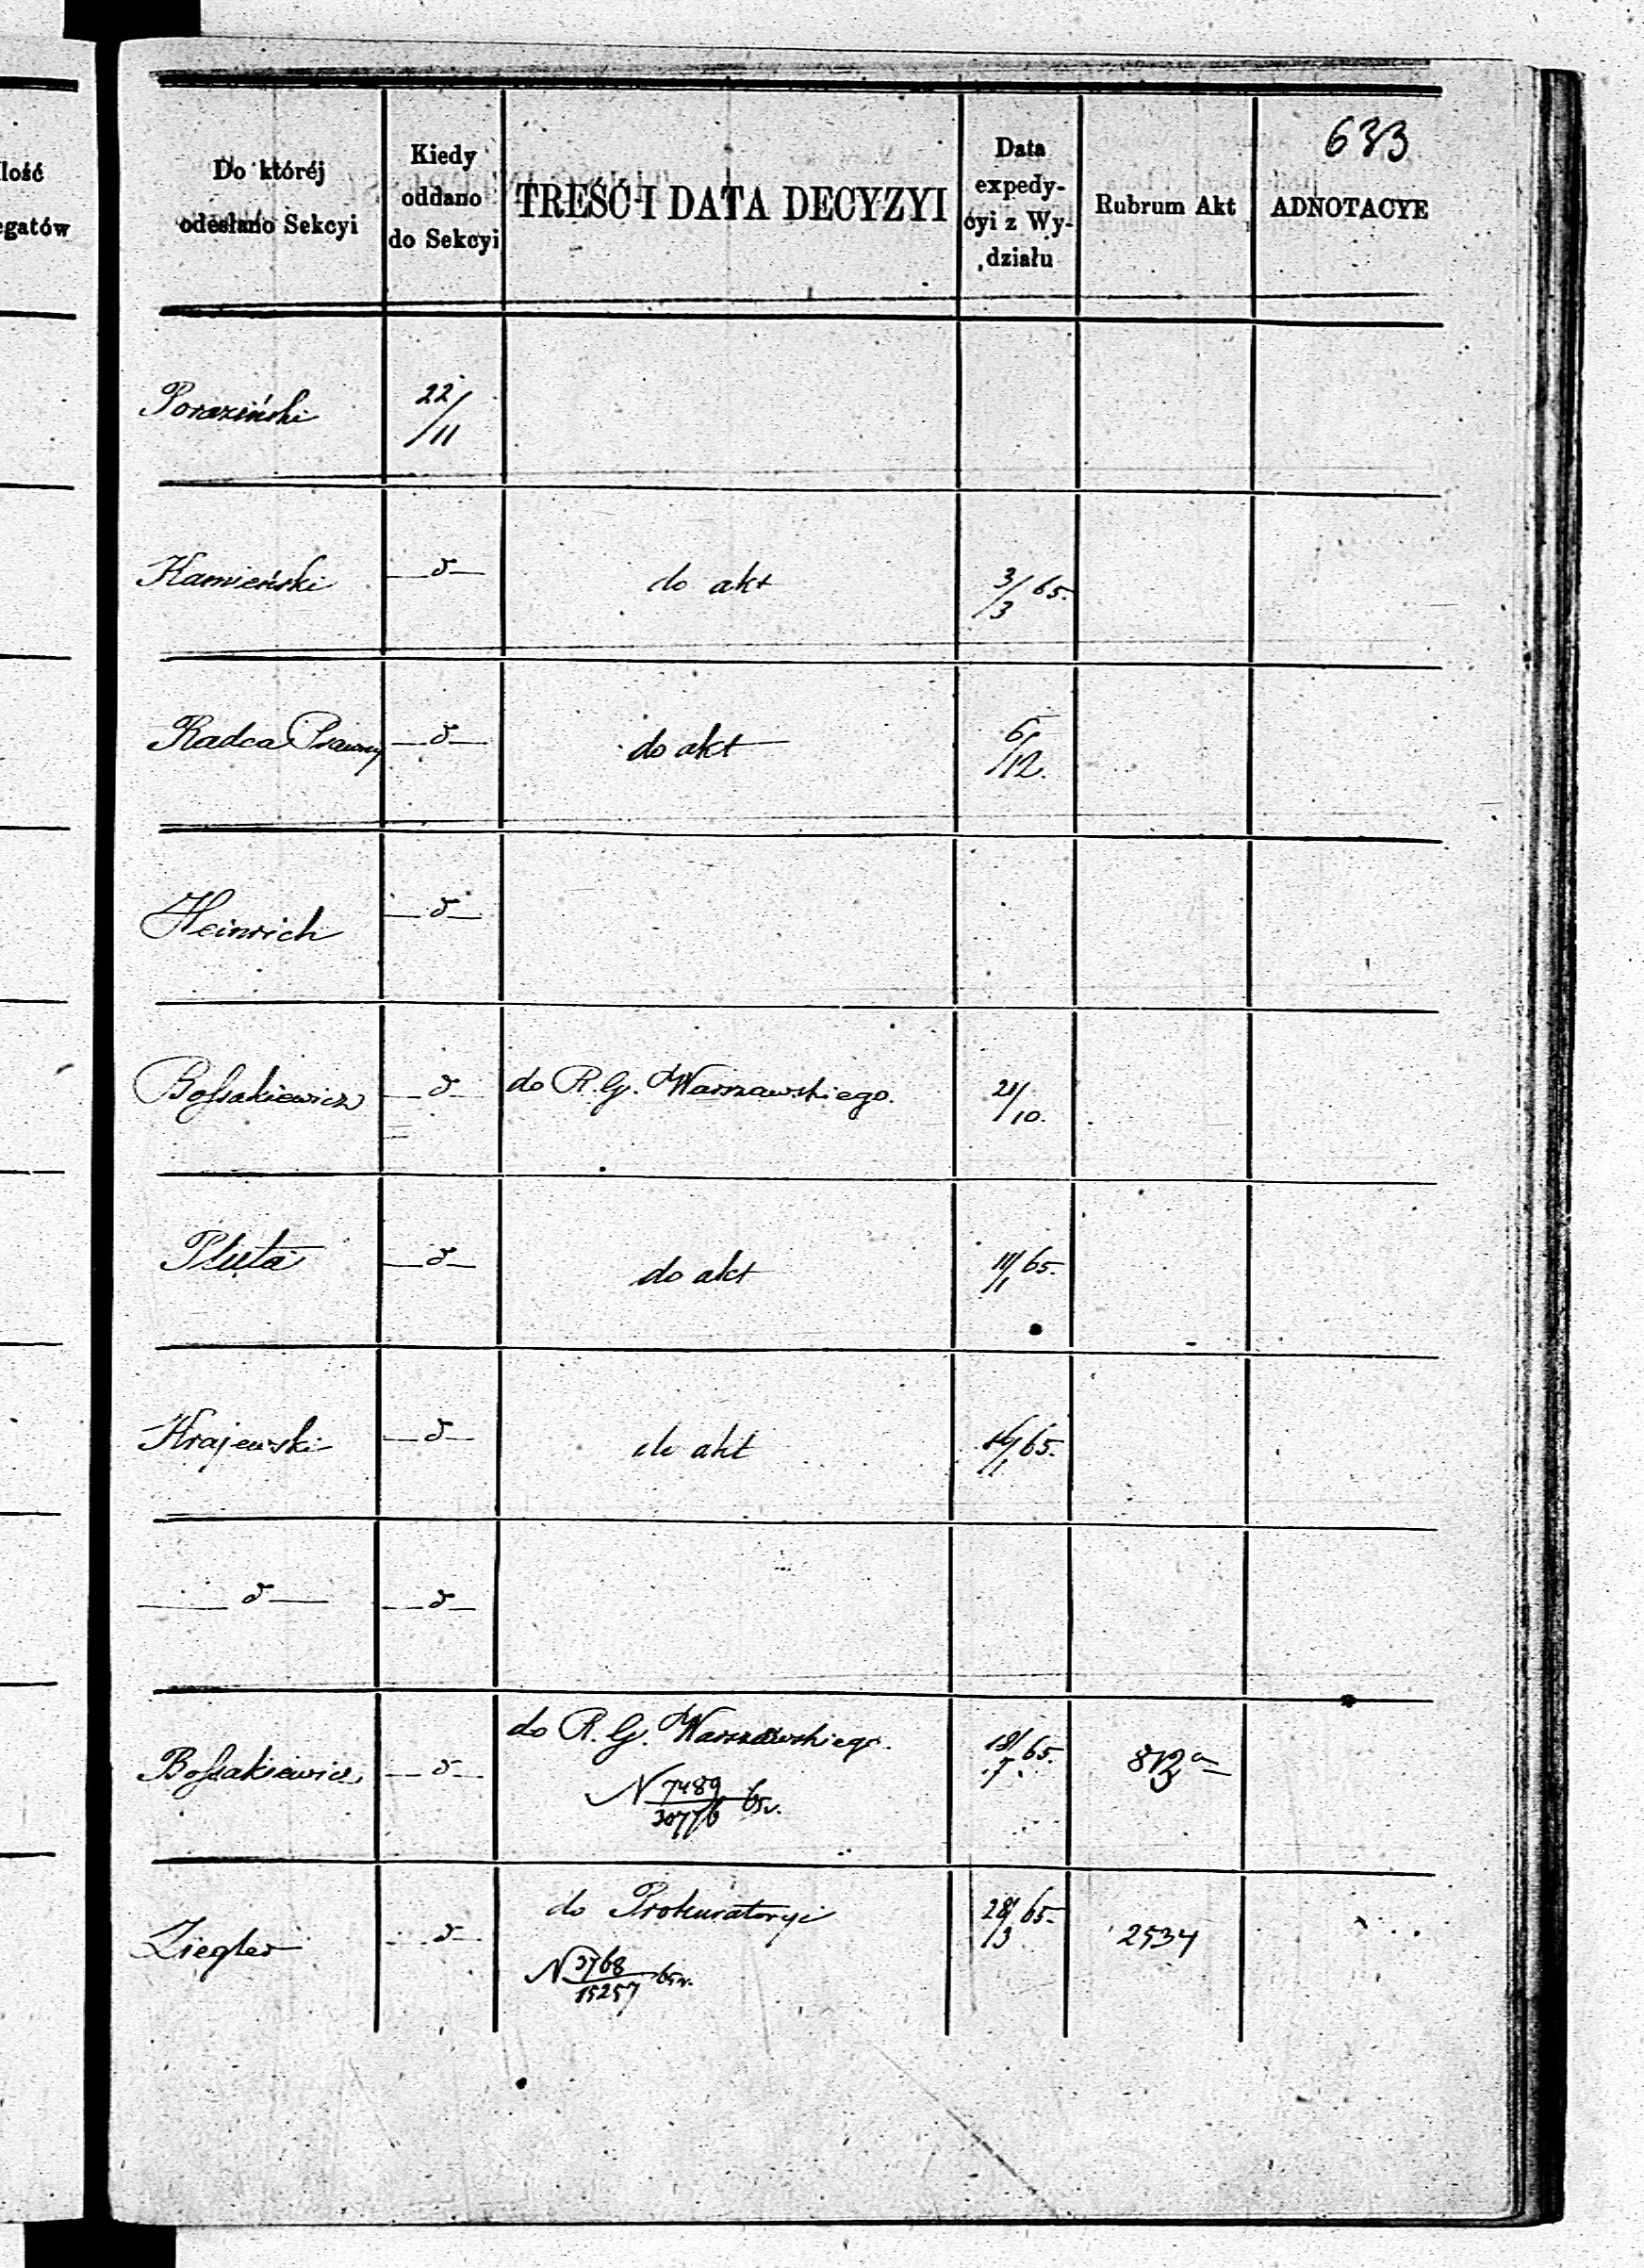 633
lość
egatów
Do któréj
odesłano Sekcyi
Kiedy
oddano
do Sekcyi
TREŚĆ I DATA DECYZYI
Data
expedy-
cyi z Wy-
działu
Rubrum Akt
ADNOTACYE
Poraziński 22/11
Kamieński —d— do akt 3/3 65.
Radca Prawny —d— do akt 6/12.
Heinrich —d—
Bossakiewicz —d— do R. G. Warszawskiego. 21/10.
Pluta —d— do akt 11/1 65.
Krajewski —d— do akt 16/1 65.
—d— —d—
Bossakiewicz —d— do R. G. Warszawskiego. 18/7 65.
N 7489/30776 65 r.
Ziegler —d— do Prokuratoryi 28/3 65. 2534
N 3768/15257 65 r.